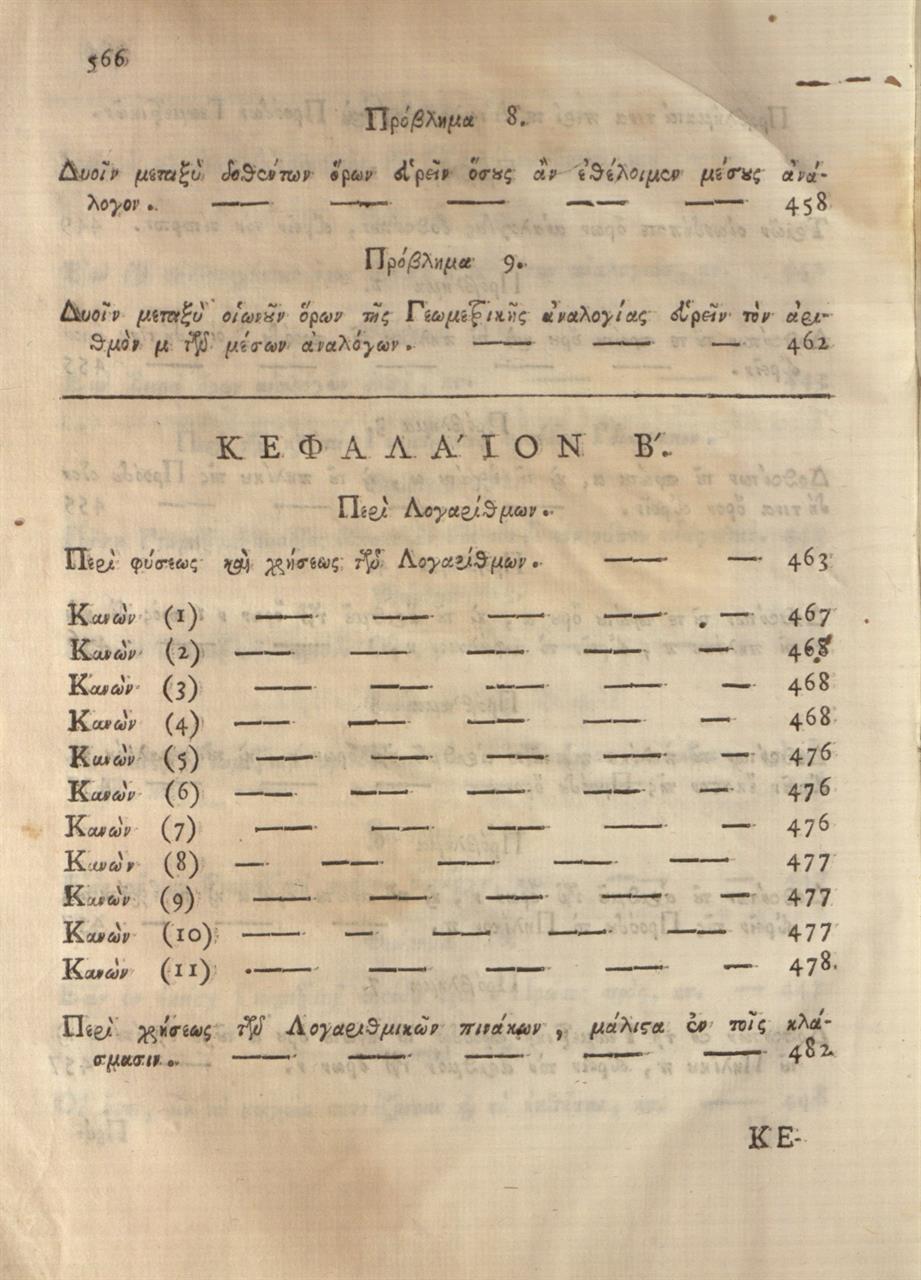 566
Πρόβλημα 8.
Δυοῖν μεταξὺ δοθέντων ὅρων εὑρεῖν ὅσους ἂν ἐθέλοιμεν μέσους ἀνά-
λογον. — — — — — 458
Πρόβλημα 9.
Δυοῖν μεταξὺ οἱωνοῦν ὅρων τῆς Γεωμετρικῆς ἀναλογίας εὑρεῖν τὸν ἀρι-
θμὸν μ τῶν μέσων ἀναλόγων. — — — 462
ΚΕΦΑΛΑ΄ΙΟΝ Β΄.
Περὶ Λογαρίθμων.
Περὶ φύσεως καὶ χρήσεως τῶν Λογαρίθμων. — — 463
Κανὼν (1) — — — — — 467
Κανὼν (2) — — — — — 468
Κανὼν (3) — — — — — 468
Κανὼν (4) — — — — — 468
Κανὼν (5) — — — — — 476
Κανὼν (6) — — — — — 476
Κανὼν (7) — — — — — 476
Κανὼν (8) — — — — — 477
Κανὼν (9) — — — — — 477
Κανὼν (10) — — — — — 477
Κανὼν (11) — — — — — 478.
Περὶ χρήσεως τῶν Λογαριθμικῶν πινάκων, μάλιϛα ἐν τοῖς κλά-
σμασιν. — — — — — 482
ΚΕ-